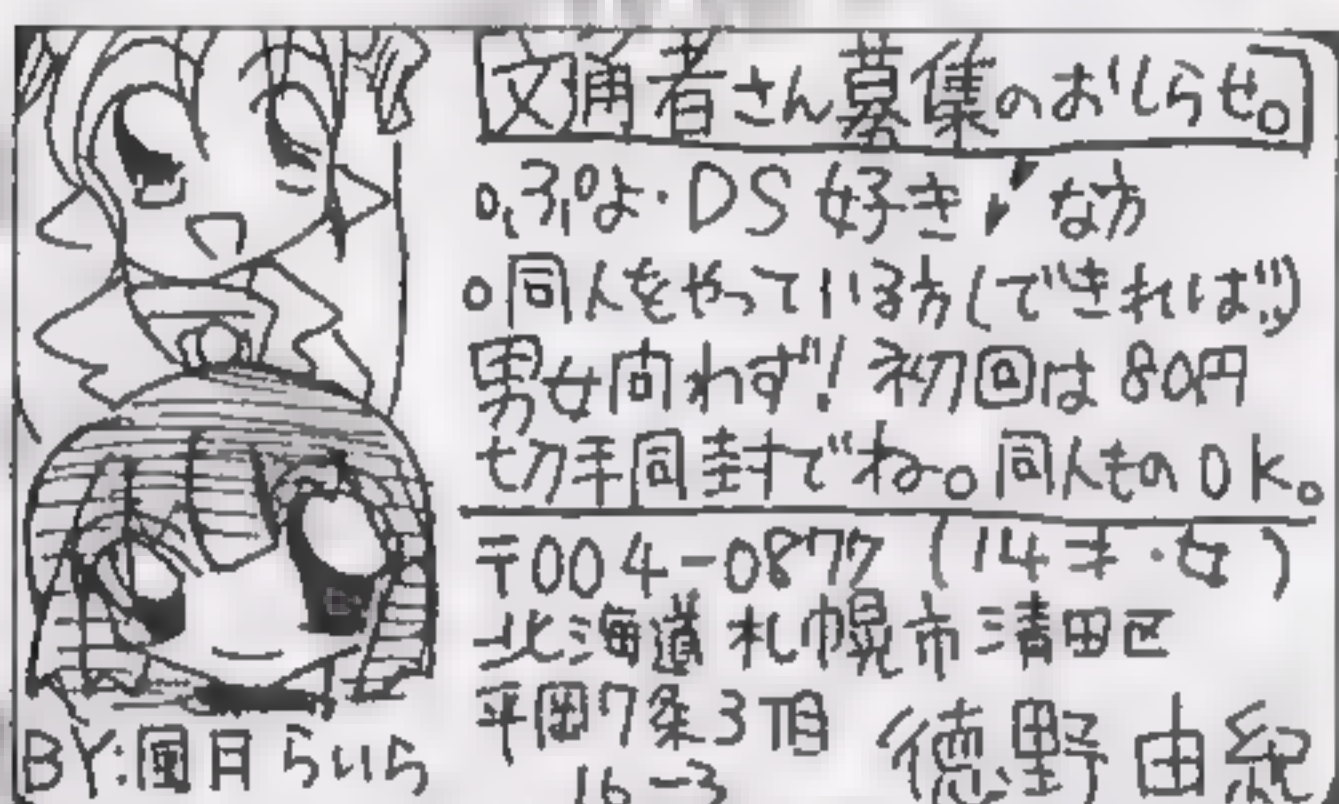 文通者さん募集のおしらせ。
o,ぷよ・DS好き な方
o同人をやっている方(できれば!!)
男女問わず!初回は80円
切手同封でね。同人ものOK。
〒004-0877 (14才・女)
北海道札幌市清田区
平岡7条3丁目
16-3
徳野由紀
BY:風月らいら